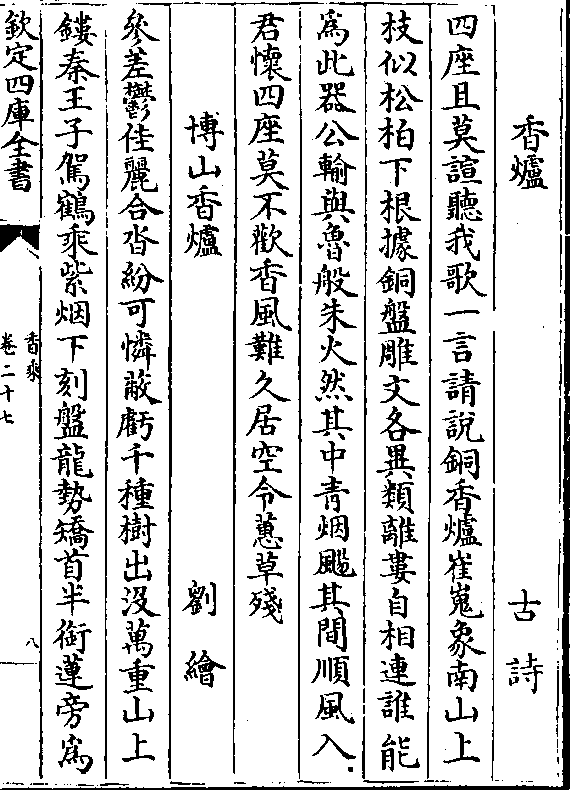 香爐 古詩
四座且莫諠聽我歌一言請說銅香爐崔嵬象南山上
枝似松柏下根據銅盤雕文各異類離婁自相連誰能
為此器公輸與魯般朱火然其中青烟颺其間順風入
君懷四座莫不歡香風難久居空令蕙草殘
博山香爐 劉繪
參差鬱佳麗合沓紛可憐蔽虧千種樹出沒萬重山上
鏤秦王子駕鶴乘紫烟下刻盤龍勢矯首半銜蓮旁為
欽定四庫全書
香乘
卷二十七
八